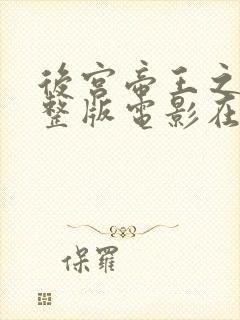 後宮帝王之
整版電影在
保羅